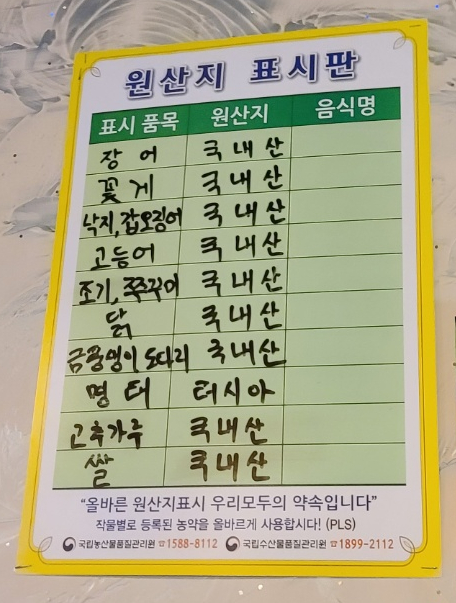 원산지 표시판
표시 품목 원산지 음식명
장어 국내산
꽃게 국내산
낙지,갑오징어 국내산
고등어 국내산
조기, 쭈꾸미 국내산
닭 국내산
금풍영이 도다리 국내산
명태 터시아
고추가루 국내산
쌀 국내산
“올바른 원산지표시 우리모두의 약속입니다”
작물별로 등록된 농약을 올바르게 사용합시다! (PLS)
국립농산물품질관리원 ☎1588-8112 국립수산물품질관리원 ☎1899-2112